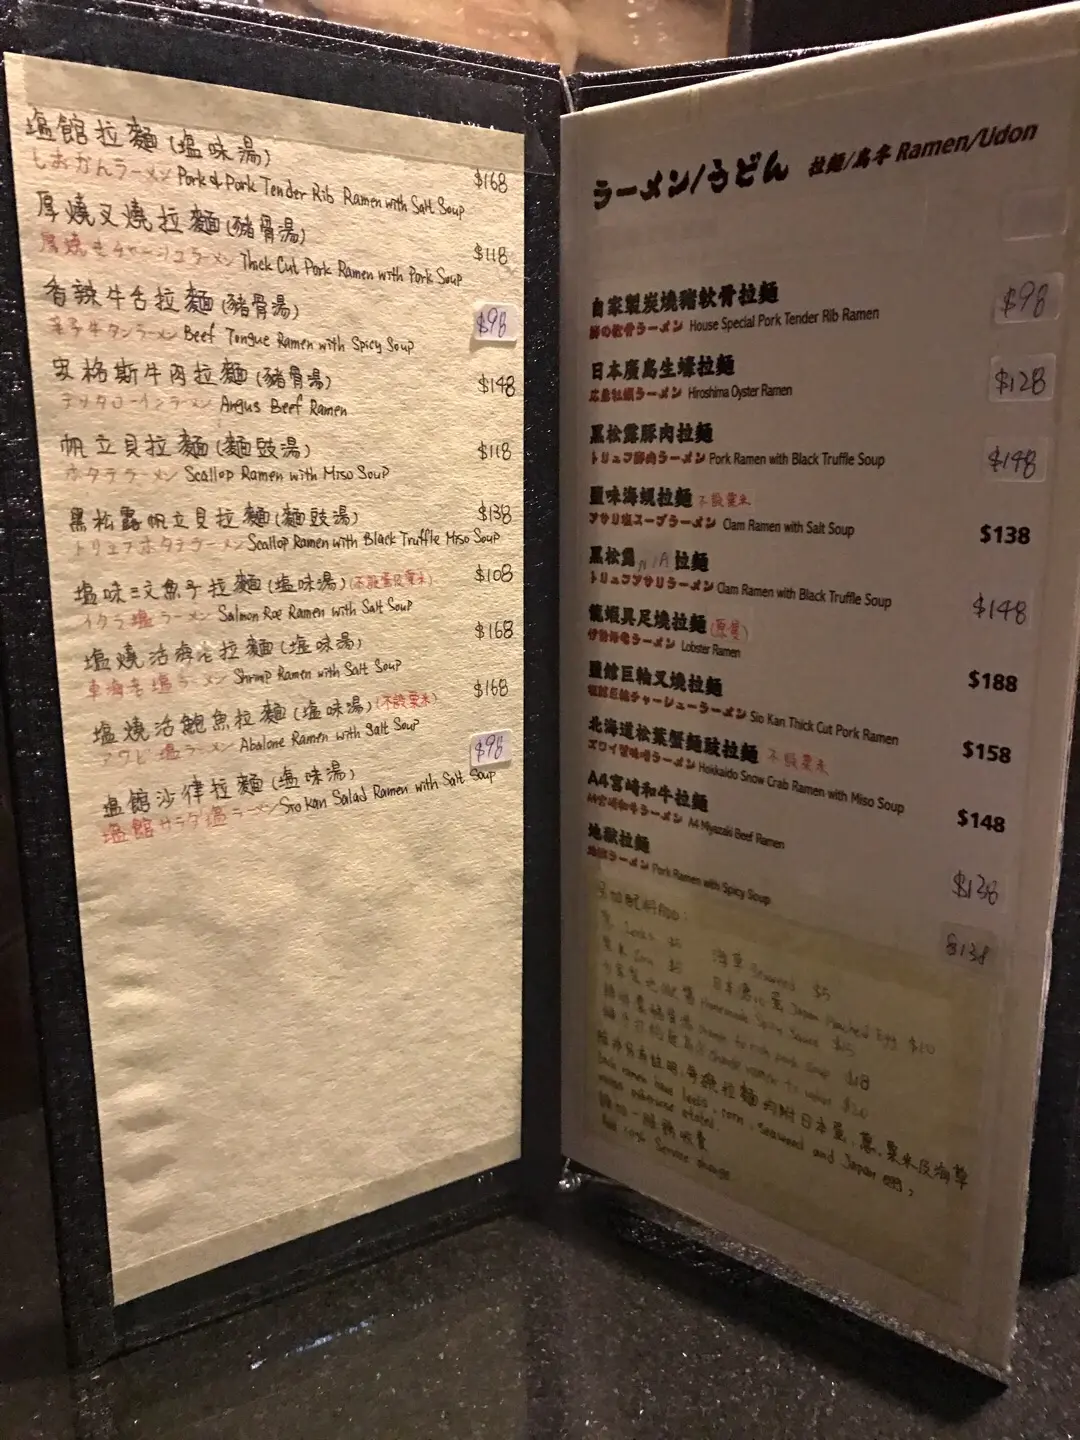 塩館拉麵(塩味湯)
しおかんラーメン Pork & Pork Tender Rib Ramen with Salt Soup $168
厚燒叉燒拉麵(豬骨湯)
厚焼きチャーシュラーメン Thick Cut Pork Ramen with Pork Soup $118
香辣牛舌拉麵(豬骨湯)
辛子牛タンラーメン Beef Tongue Ramen with Spicy Soup $98
安格斯牛肉拉麵(豬骨湯)
Angus Beef Ramen $148
帆立貝拉麵(麵豉湯)
ホタテラーメン Scallop Ramen with Miso Soup $118
黑松露帆立貝拉麵(麵豉湯)
トリュフホタテラーメン Scallop Ramen with Black Truffle Miso Soup $138
塩味三文魚子拉麵(塩味湯)(不設蛋及粟米)
イクラ塩ラーメン Salmon Roe Ramen with Salt Soup $108
塩燒活海老拉麵(塩味湯)
車海老塩ラーメン Shrimp Ramen with Salt Soup $168
塩燒活鮑魚拉麵(塩味湯)(不設粟米)
アワビ塩ラーメン Abalone Ramen with Salt Soup $168
塩館沙律拉麵(塩味湯)
塩館サラダ塩ラーメン Sio Kan Salad Ramen with Salt Soup $98
ラーメン/うどん 拉麵/烏冬 Ramen/Udon
自家製炭燒豬軟骨拉麵
豚の軟骨ラーメン House Special Pork Tender Rib Ramen $98
日本廣島生蠔拉麵
広島牡蠣ラーメン Hiroshima Oyster Ramen $128
黑松露豚肉拉麵
トリュフ豚肉ラーメン Pork Ramen with Black Truffle Soup $148
鹽味海蜆拉麵 不設粟米
アサリ塩スープラーメン Clam Ramen with Salt Soup $138
黑松露 拉麵
トリュフアサリラーメン Clam Ramen with Black Truffle Soup $148
龍蝦具足燒拉麵
伊勢海老ラーメン Lobster Ramen $188
鹽館巨輪叉燒拉麵
塩館巨輪チャーシューラーメン Sio Kan Thick Cut Pork Ramen $158
北海道松葉蟹麵豉拉麵 不設粟米
ズワイ蟹味噌ラーメン Hokkaido Snow Crab Ramen with Miso Soup $148
A4宮崎和牛拉麵
A4宮崎和牛ラーメン A4 Miyazaki Beef Ramen $138
地獄拉麵
地獄ラーメン Pork Ramen with Spicy Soup $138
另加配料ADD:
蔥 Leeks $5 海草 Seaweed $5
粟米 Corn $5 日本溏心蛋 Japan Poached Egg $10
Homemade Spicy Sauce $15
change to rich pork soup $18
change ramen to udon $20
除特別註明,每款拉麵均附日本蛋,蔥,粟米及海草
Each ramen have leeks, corn, seaweed and Japan egg,
unless otherwise stated.
另加一服務收費
Add 10% Service charge